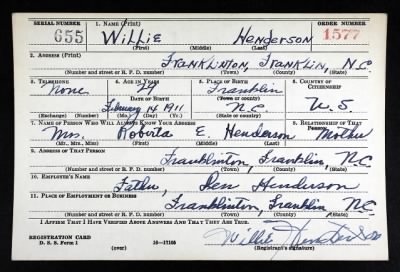 SERIAL NUMBER 1. NAME (Print) ORDER NUMBER
655 Willie Henderson 1577
(First) (Middle) (Last)
2. ADDRESS (Print)
Franklinton, Franklin, N.C.
(Number and street or R. F. D. number) (Town) (County) (State)
3. TELEPHONE 4. AGE IN YEARS 5. PLACE OF BIRTH 6. COUNTRY OF CITIZENSHIP
None 29 Franklin
DATE OF BIRTH (Town or county)
February 14 1911 N.C. U.S
(Exchange) (Number) (Mo.) (Day) (Yr.) (State or country)
7. NAME OF PERSON WHO WILL ALWAYS KNOW YOUR ADDRESS 8. RELATIONSHIP OF THAT PERSON
Mrs. Roberta E. Henderson Mother
(Mr., Mrs., Miss) (First) (Middle) (Last)
9. ADDRESS OF THAT PERSON
Franklinton, Franklin, N.C.
(Number and street or R. F. D. number) (Town) (County) (State)
10. EMPLOYER'S NAME
Father, Henderson
11. PLACE OF EMPLOYMENT OR BUSINESS
Franklinton, Franklin N.C.
(Number and street or R. F. D. number) (Town) (County) (State)
I AFFIRM THAT I HAVE VERIFIED ABOVE ANSWERS AND THAT THEY ARE TRUE.
REGISTRATION CARD Willie Henderson
D. S. S. Form 1 (over) 16—17105 (Registrant's signature)